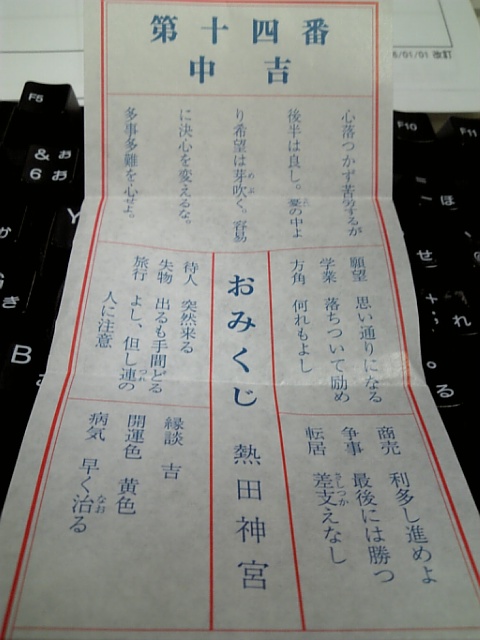 第十四番
中吉
心落つかず苦労するが
後半は良し。憂の中よ
り希望は芽吹く。容易
に決心を変えるな。
多事多難を心せよ。
願望 思い通りになる
学業 落ちついて励め
方角 何れもよし
おみくじ 熱田神宮
待人 突然来る
失物 出るも手間どる
旅行 よし、但し連の
人に注意
商売 利多し進めよ
争事 最後には勝つ
転居 差支えなし
縁談 吉
開運色 黄色
病気 早く治る
/01/01 改訂
F5
&
6
お
ぉ
Y
B
F10
F11
ほ
せ
れ
る
き